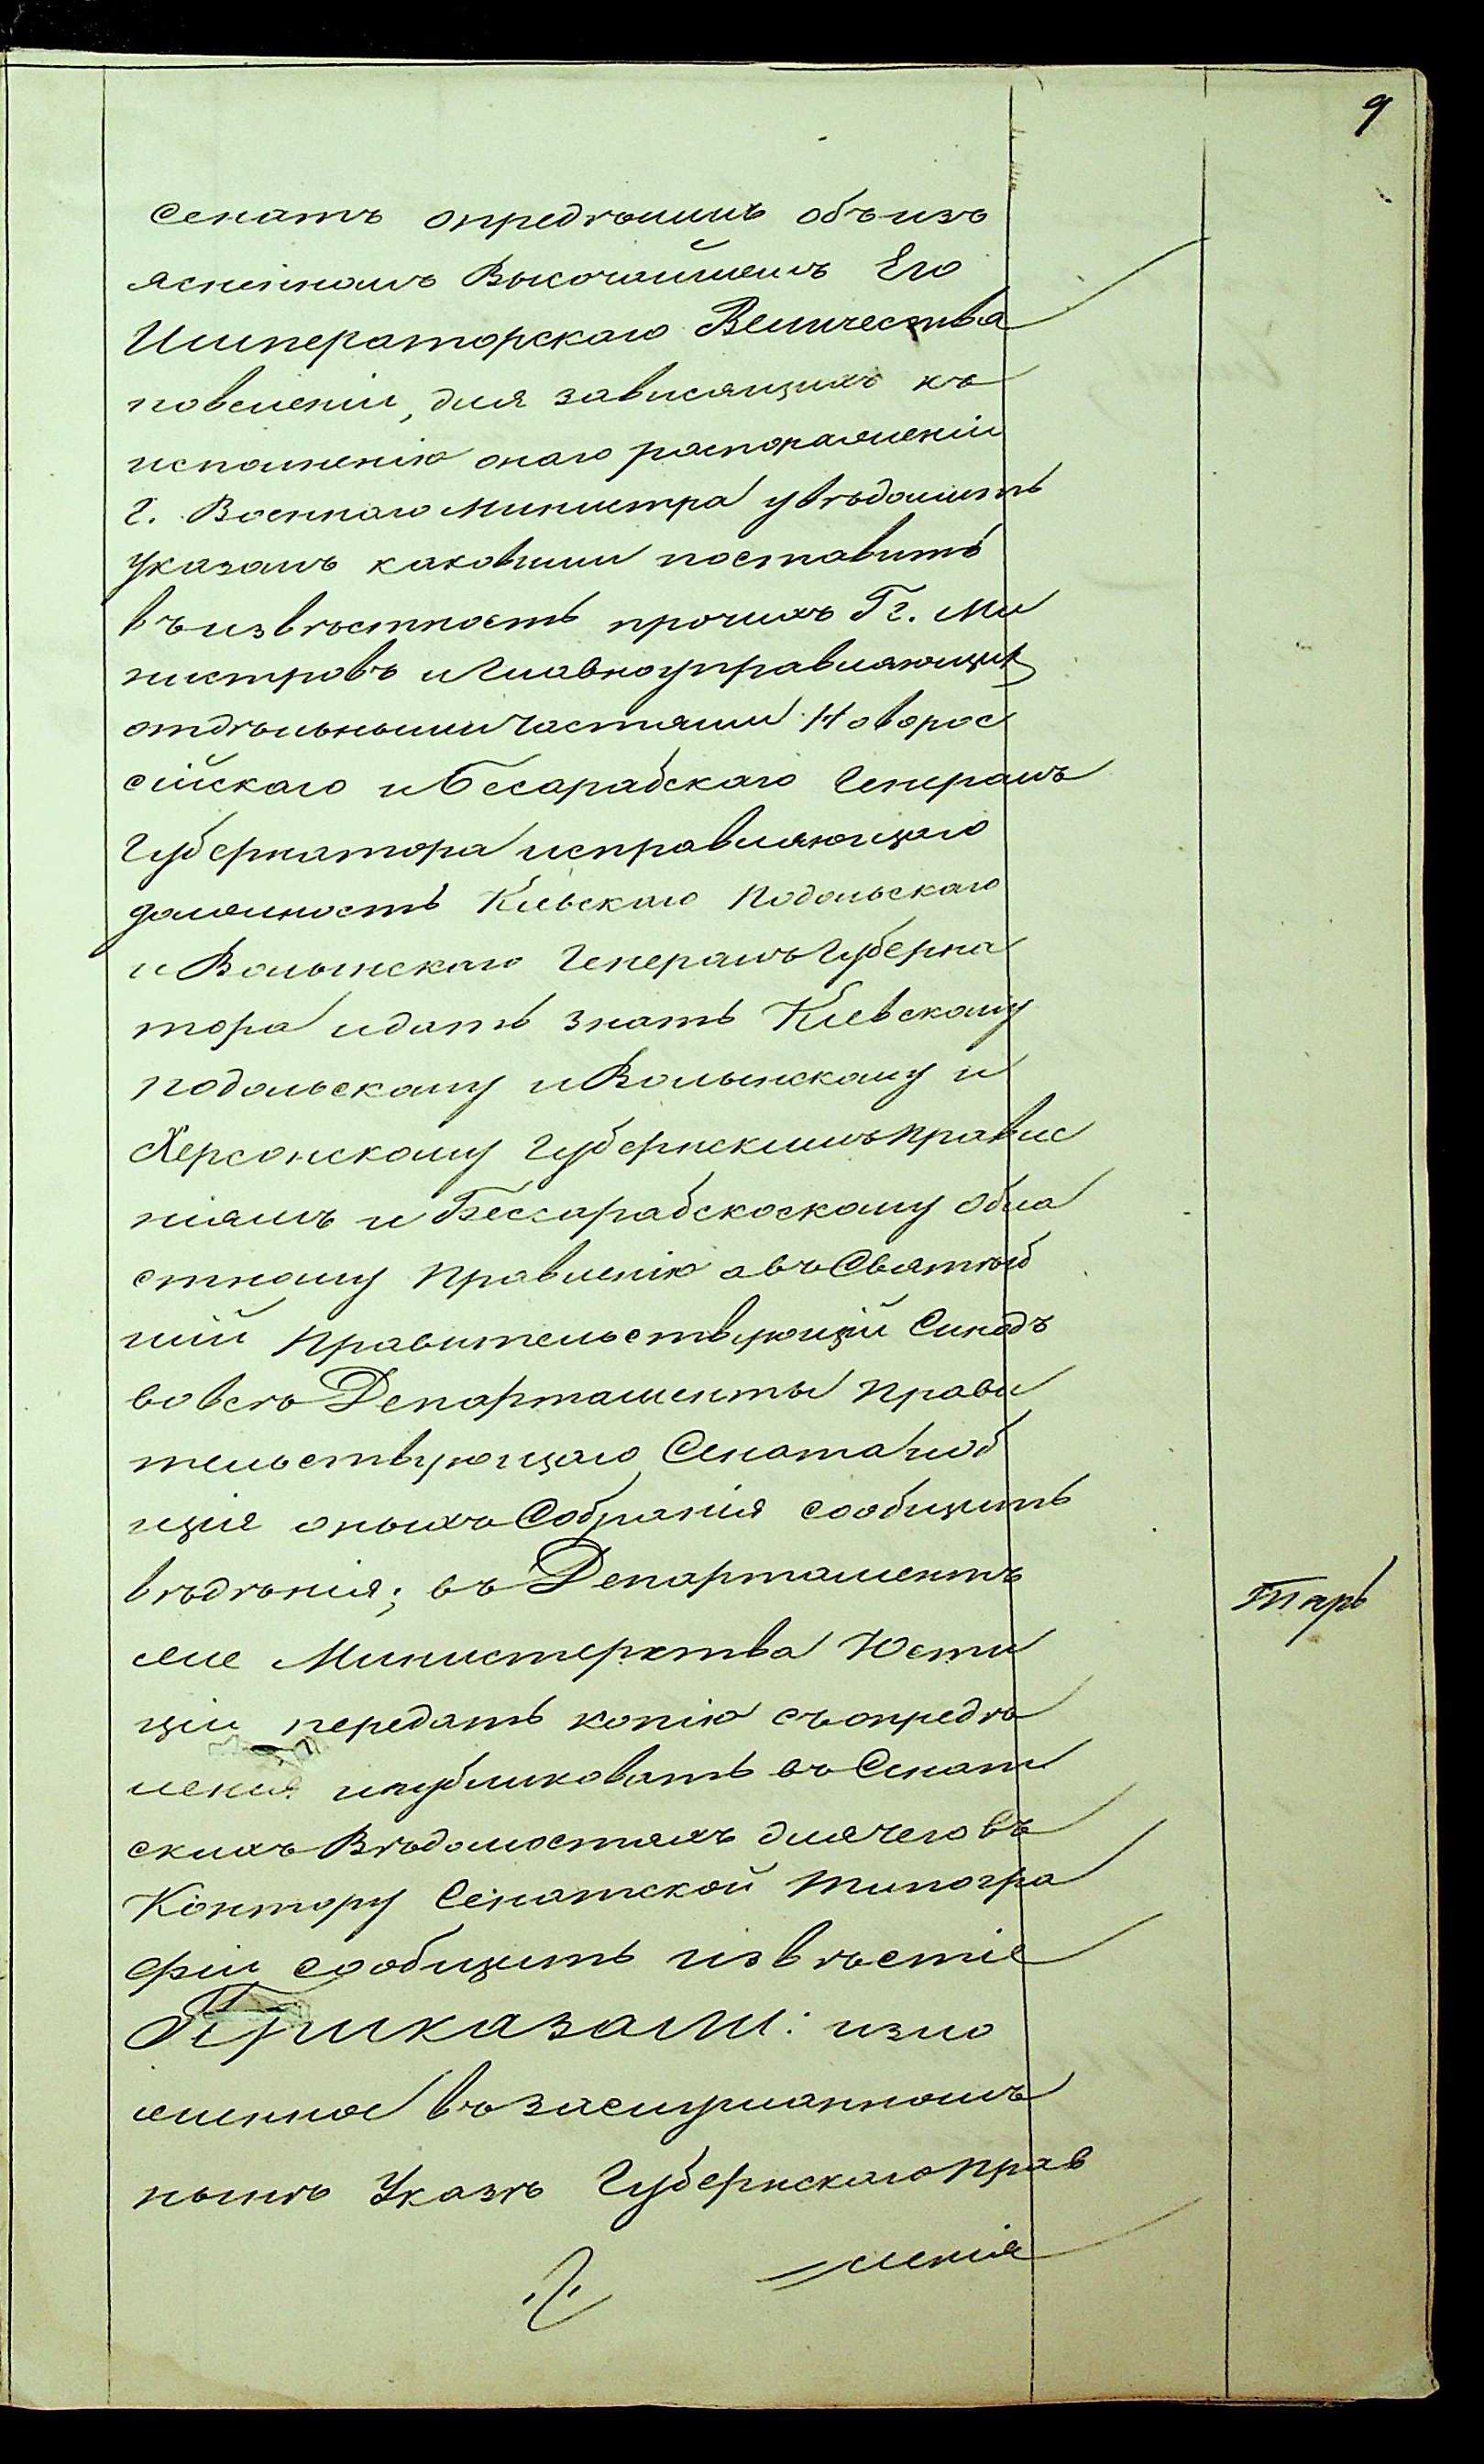 9
Сенатъ опредѣлилъ объ изъ
ясненномъ Высочайшемъ Его
Императорскаго Величества
повеленіи, для зависящихъ къ
исполненію онаго распоряженій
Г. Военнаго Министра увѣдомить
указомъ каковыми поставить
въ извѣстность прочихъ Гг. Ми
нистровъ и Главноуправляющихъ
отдѣльными Частями Новорос
сійскаго и Бесарабскаго Генералъ
Губернатора исправляющаго
должность Кіевскаго Подольскаго
и Волынскаго Генералъ Губерна
тора и дать знать Кіевскому
Подольскому и Волынскому и
Херсонскому Губернскимъ Правле
ніямъ и Бессарабскоскому Обла
стному Правленію а въ Святѣй
шій Правительствующій Синодъ
во всѣ Департаменты Прави
тельствующаго Сената и об
щіе оныхъ Собранія сообщить
вѣдѣнія; въ Департаментъ
же Министерства Юсти
ціи передать копію съ опредѣ
ленія и публиковать въ Сенат
скихъ Вѣдомостяхъ для чего въ
Контору Сенатской Типогра
фіи сообщить извѣстіе
Приказали: изло
женное въ заслушанномъ
нынѣ Указѣ Губернскаго Прав
ленія